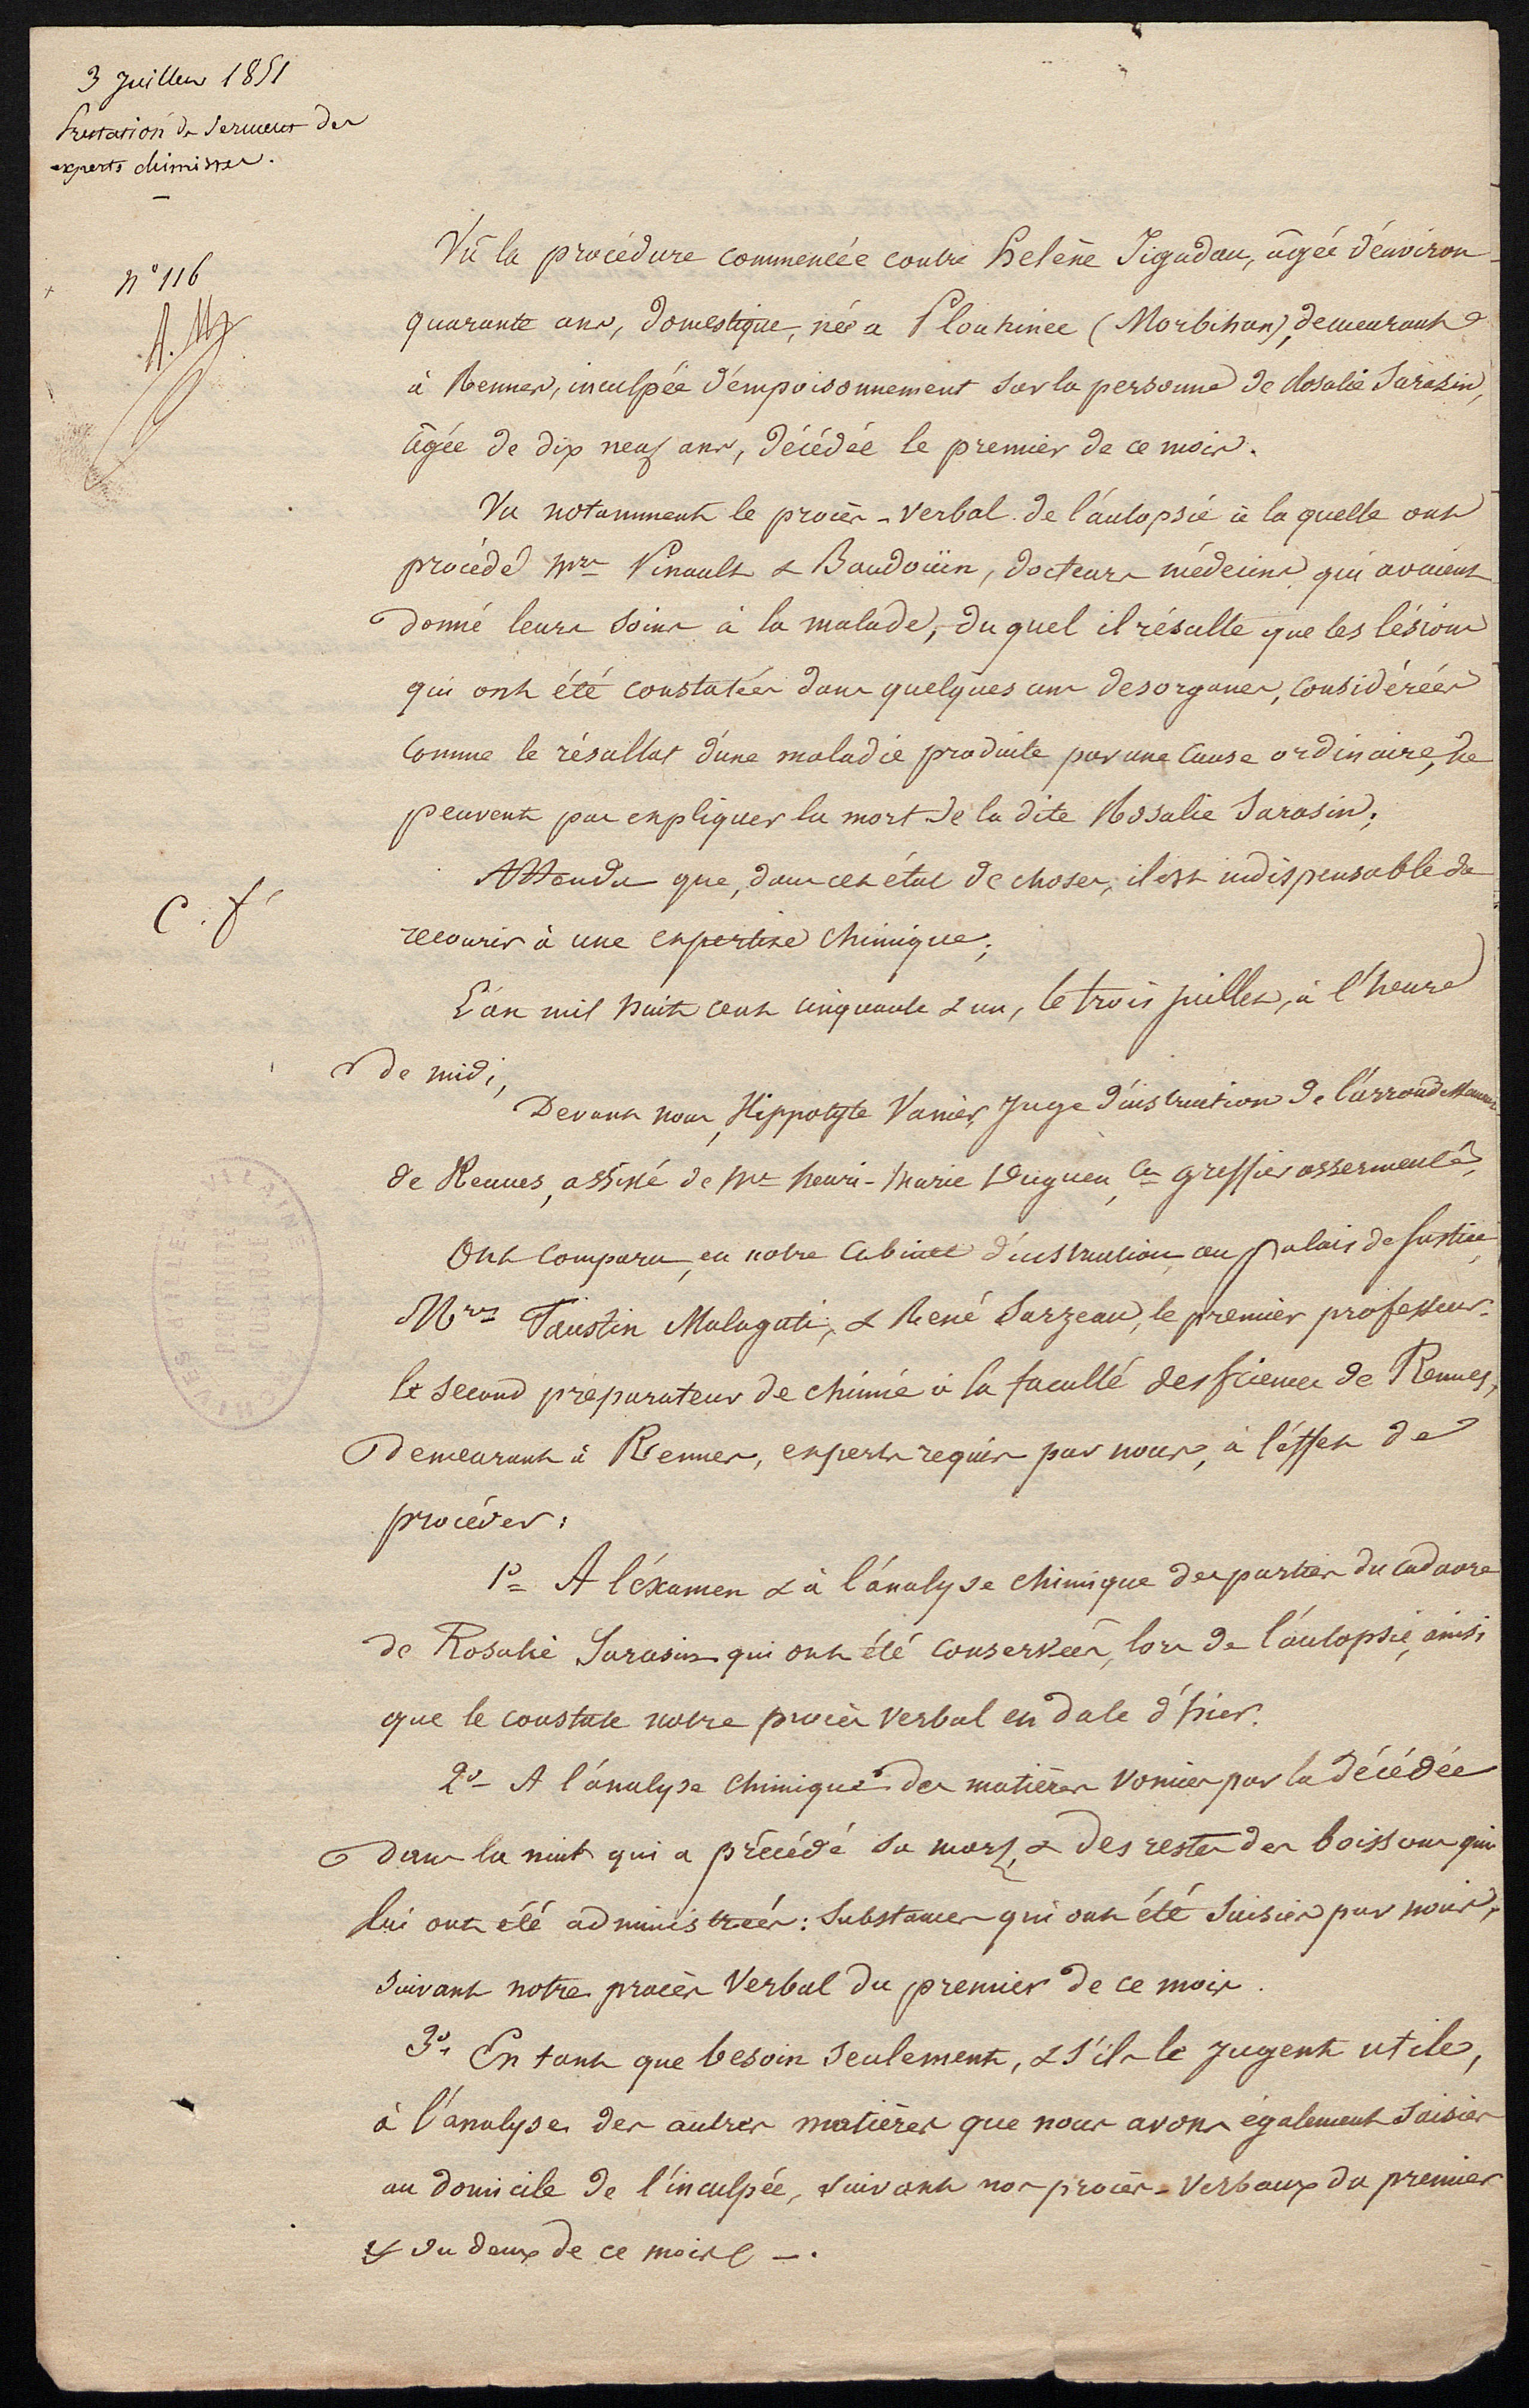 3 Juillet 1851
Prestation de Serment des
experts chimistes.
n° 116
Vû la procédure commencée contre helène Jigadau, âgée d'environ
quarante ans, domestique, née a Plouhinec (Morbihan), demeurant
à Rennes, inculpée d'empoisonnement sur la personne de Rosalie Sarasin,
âgée de dix neuf ans, décédée le premier de ce mois.
Vu notamment le procès-verbal de l'autopsie à la quelle ont
procédé Mrs Pinault & Baudoüin, docteurs médecins qui avaient
donné leurs soins à la malade, du quel il résulte que les lésions
qui ont été constatées dans quelques uns des organes, considérées
comme le résultat d'une maladie produite par une cause ordinaire, ne
peuvent pas expliquer la mort de la dite Rosalie Sarasin;
Attendu que, dans cet état de choses, il est indispensable de
recourir à une expertise chimique;
C. f
L'an mil huit cent cinquante & un, le trois juillet, à l'heure
de midi,
Devant nous, Hippolyte Vanier, Juge d'instruction de l'arrondissement
de Rennes, assisté de Mr henri-Marie Duguen, Cis greffier assermenté,
Ont comparu, en notre Cabinet d'instruction au palais de Justice,
Mrs Faustin Malaguti, & René Sarzeau, le premier professeur
le second préparateur de chimie à la faculté des sciences de Rennes,
demeurant à Rennes, experts requis par nous, à l'effet de
procéder:
1° A l'éxamen & à l'analyse chimique des parties du cadavre
de Rosalie Sarasin qui ont été conservées, lors de l'autopsie, ainsi
que le constate notre procès verbal en date d'hier.
2° A l'analyse chimique des matières vomies par la décédée
dans la nuit qui a précédé sa mort, & des restes des boissons qui
lui ont été administrées: substances qui ont été saisies par nous,
suivant notre procès Verbal du premier de ce mois.
3° En tant que besoin seulement, & s'ils le jugent utile,
à l'analyse des autres matières que nous avons également saisies
au domicile de l'inculpée, suivant nos procès-verbaux du premier
& du deux de ce mois.
ARCHIVES D'ILLE-&-VILAINE
PROPRIÉTÉ
PUBLIQUE